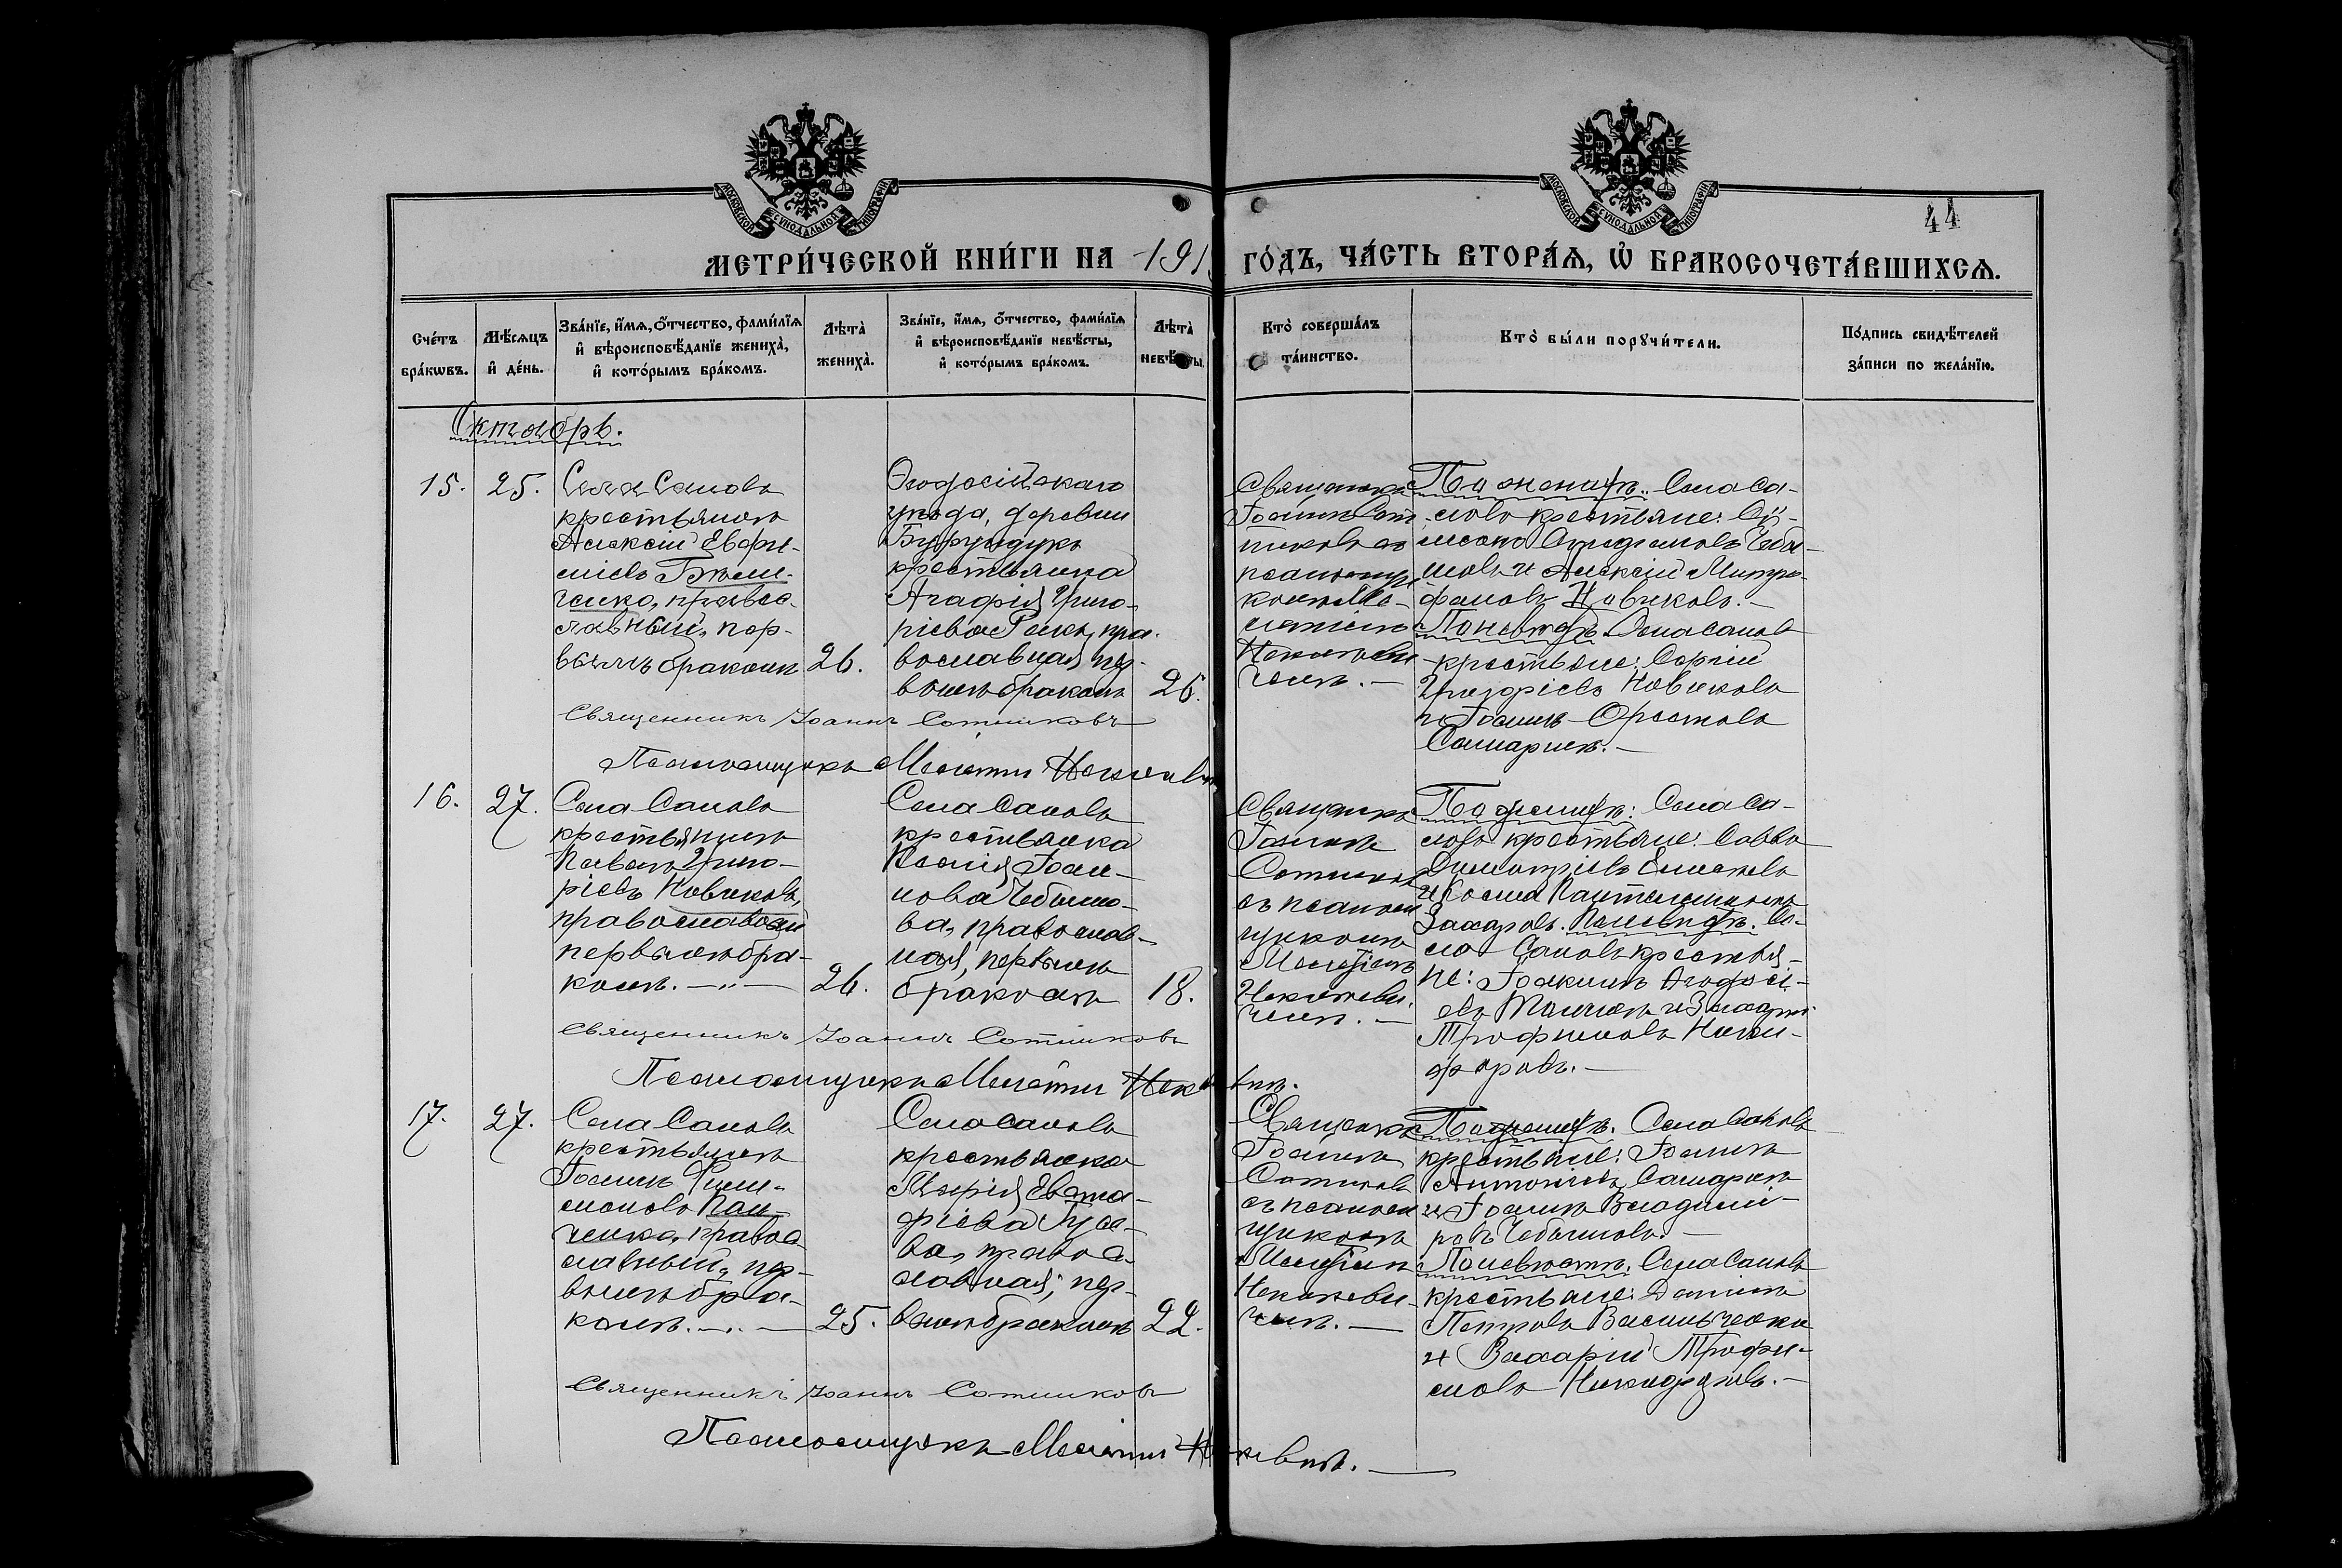 МОСКОВСКОЙ СѴНОДАЛЬНОЙ ТИПОГРАФІИ
МОСКОВСКОЙ СѴНОДАЛЬНОЙ ТИПОГРАФІИ
44
МЕТРИ́ЧЕСКОЙ КНИ́ГИ НА 191
ГО́ДЪ, ЧА́СТЬ ВТОРА́Я, Ѡ҆ БРАКОСОЧЕТА́ВШИХСЯ.
Сче́тъ
бра́кѡвъ.
Мѣ́сяцъ
и҆ де́нь.
Зва́нїе, и҆́мѧ, ѻ҆́тчество, фами́лїѧ
и҆ вѣроисповѣ́данїе жениха̀,
и҆ кото́рымъ бра́комъ.
Лѣта̀
жениха̀.
Зва́нїе, и҆́мѧ, ѻ҆́тчество, фами́лїѧ
и҆ вѣроисповѣ́данїе невѣ́сты,
и҆ кото́рымъ бра́комъ.
Лѣта̀
невѣ́сты.
Кто̀ соверша́лъ
та́инство.
Кто̀ бы́ли порꙋчи́тели.
По́дпись свидѣ́телей
за́писи по жела́нїю.
Октябрь.
15.
25.
Села Саловъ
крестьянинъ
Алексій Евфи-
міевъ
ченко, правос-
лавный, пер-
вымъ бракомъ
26.
Ѳеодосійскаго
уѣзда, деревни
Бурундукъ
крестьянка
Агафія Григо-
ріева пра-
вославная, пер-
вымъ бракомъ
26.
Священникъ
Іоаннъ Сот-
никовъ съ
псаломщи-
комъ Ме-
летіемъ
Некжеви-
чемъ. —
По женихѣ: Села Са-
ловъ крестьяне:
Чебы-
шовъ и Алексій Митро-
фановъ Новиковъ. —
По невѣстѣ: Села Саловъ
крестьяне: Сергій
Григоріевъ Новиковъ
и Іоаннъ Орестовъ
Самаринъ. —
Священникъ Іоаннъ Сотниковъ
Псаломщикъ Мелетій
16.
27.
Села Саловъ
крестьянинъ
Павелъ Григо-
ріевъ Новиковъ,
православный
первымъ бра-
комъ. —"—
26.
Села Саловъ
крестьянка
Ксенія Іоан-
нова Чебышо-
ва, православ-
ная, первымъ
бракомъ
18.
Священникъ
Іоаннъ
Сотниковъ
съ псалом-
щикомъ
Мелетіемъ
Некжеви-
чемъ. —
По женихѣ: Села Са-
ловъ крестьяне: Савва
Димитріевъ
и Косма Пантелеимоновъ
Захаровъ. По невѣстѣ: Се-
ла Саловъ крестья-
не: Іоакимъ Ѳеодосі-
евъ и Захарій
Трофимовъ Ники-
форовъ. —
Священникъ Іоаннъ Сотниковъ
Псаломщикъ Мелетій
17.
27.
Села Саловъ
крестьянинъ
Іоаннъ Фили-
моновъ Пан-
ченко, правос-
лавный, пер-
вымъ бра-
комъ. —"—
25.
Села Саловъ
крестьянка
Марія Евста-
фіева Гусе-
ва, правос-
лавная, пер-
вымъ бракомъ
22.
Священникъ
Іоаннъ
Сотниковъ
съ псалом-
щикомъ
Мелетіемъ
Некжеви-
чемъ. —
По женихѣ: Села Саловъ
крестьяне: Іоаннъ
Антоніевъ Самаринъ
и Іоаннъ Владими-
ровъ Чебышовъ. —
По невѣстѣ: Села Саловъ
крестьяне: Даніилъ
Петровъ Васильченко
и Захарій Трофи-
мовъ Никифоровъ. —
Священникъ Іоаннъ Сотниковъ
Псаломщикъ Мелетій